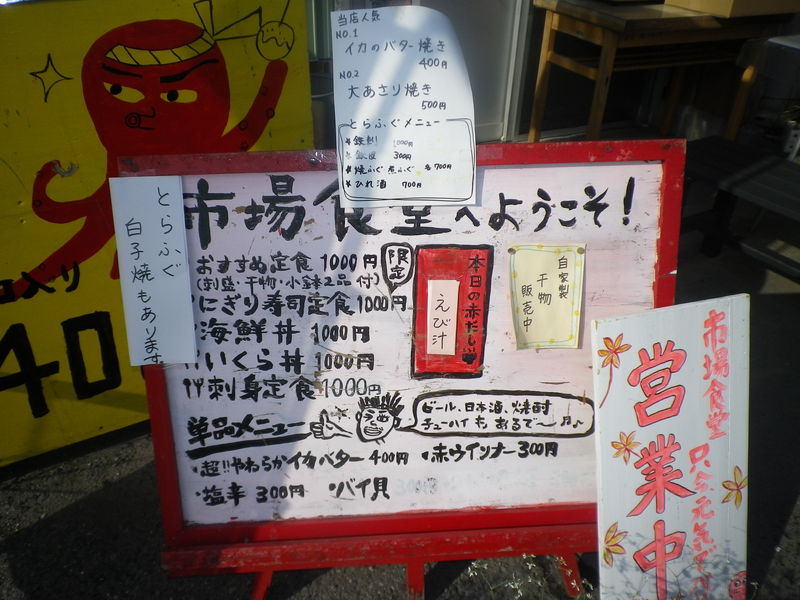 当店人気
NO.1
イカのバター焼き
400円
NO.2
大あさり焼き
500円
とらふぐメニュー
300円
*焼ふぐ 煮ふぐ 各700円
*ひれ酒 700円
とらふぐ
白子焼もあります
市場食堂へようこそ!
おすすめ定食 1000円
(刺盛・干物・小鉢2品 付)
限定
にぎり寿司定食 1000円
海鮮丼 1000円
いくら丼 1000円
刺身定食 1000円
本日の赤だし
えび汁
自家製
干物
販売中
単品メニュー
ビール、日本酒、焼酎
チューハイ も あるで〜♬♪
・超!!やわらかイカバター 400円
・赤ウインナー 300円
・塩辛 300円
・バイ貝
市場食堂
営業中
入り
40